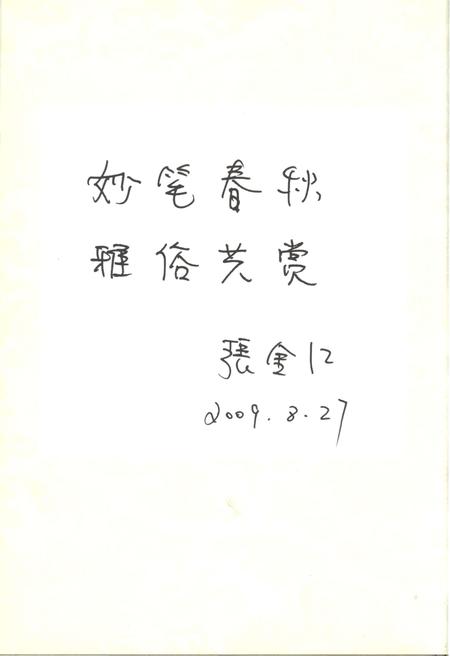 妙笔春秋
雅俗共赏
張金仁
2009.8.27